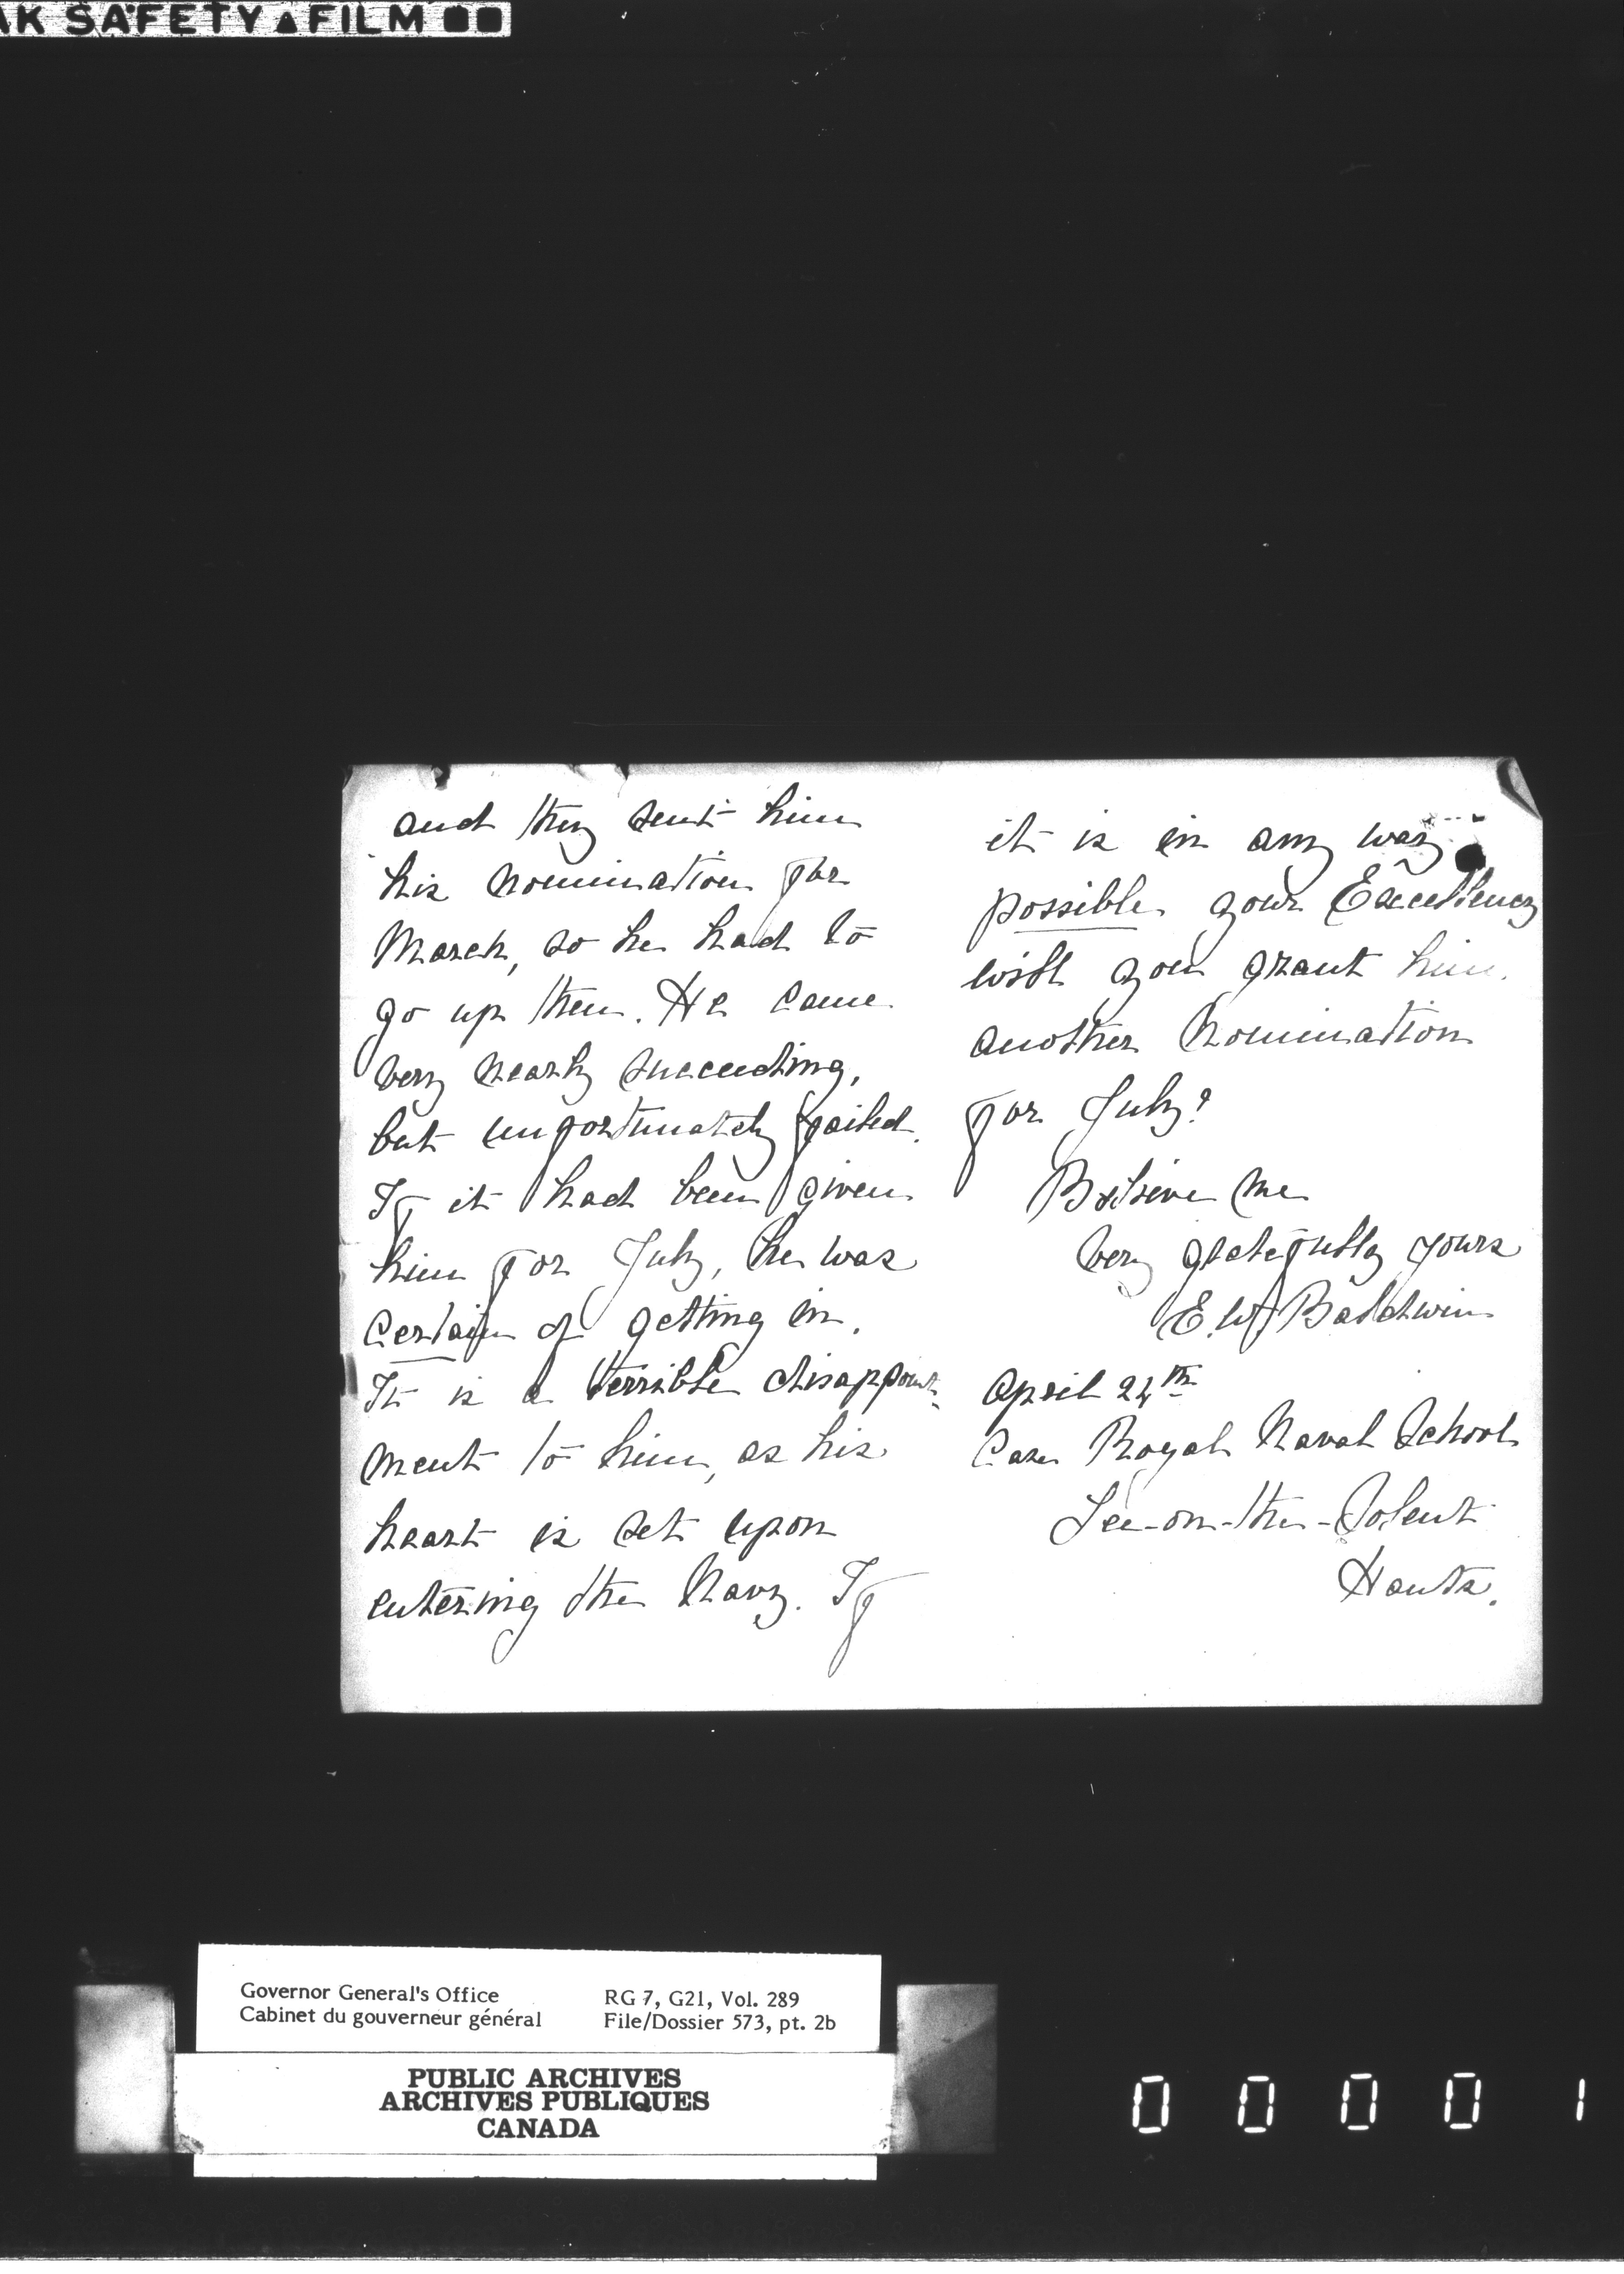 AK SAFETY ▲ FILM
and they sent him
his nomination for
March, so he had to
go up then. He came
very nearly succeeding,
but unfortunately failed.
If it had been given
him for July, he was
certain of getting in.
It is a terrible disappoint-
ment to him, as his
heart is set upon
entering the Navy. If
it is in any way
possible your Excellency
will you grant him
another nomination
for July?
Believe me
very gratefully yours
E. W. Baldwin
April 24th
Care Royal Naval School
Lee-on-the-Solent
Hants.
Governor General's Office
Cabinet du gouverneur général
RG 7, G21, Vol. 289
File/Dossier 573, pt. 2b
PUBLIC ARCHIVES
ARCHIVES PUBLIQUES
CANADA
0 0 0 0 1